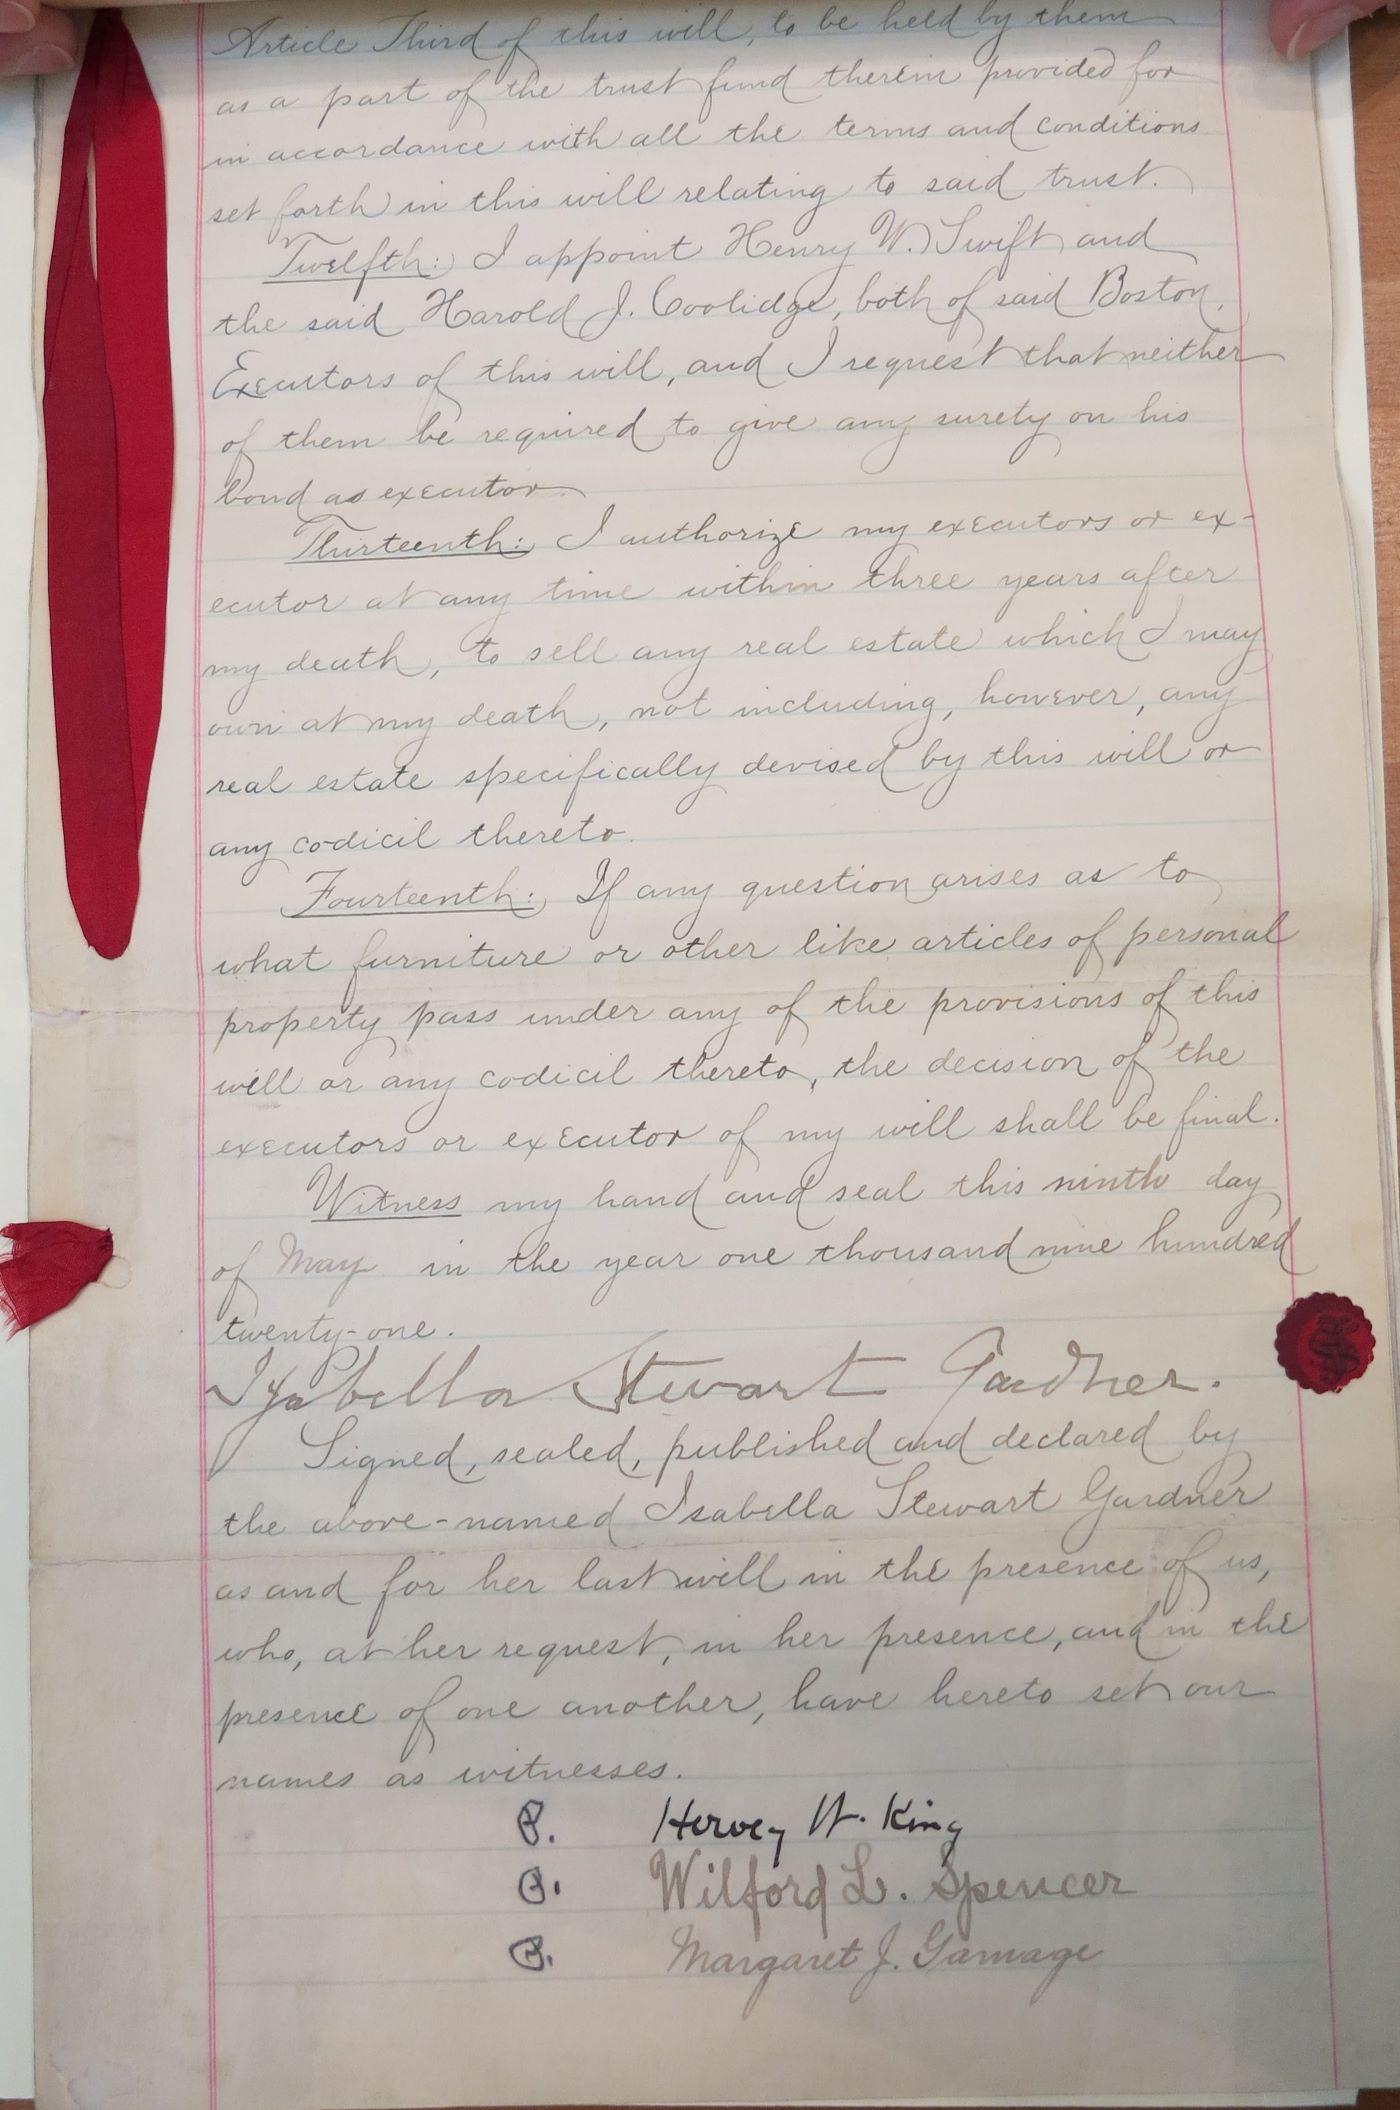 Article Third of this will, to be held by them
as a part of the trust fund therein provided for
in accordance with all the terms and conditions
set forth in this will relating to said trust.
Twelfth: I appoint Henry W. Swift and
the said Harold J. Coolidge, both of said Boston,
Executors of this will, and I request that neither
of them be required to give any surety on his
bond as executor.
Thirteenth: I authorize my executors or ex-
ecutor at any time within three years after
my death, to sell any real estate which I may
own at my death, not including, however, any
real estate specifically devised by this will or
any codicil thereto.
Fourteenth: If any question arises as to
what furniture or other like articles of personal
property pass under any of the provisions of this
will or any codicil thereto, the decision of the
executors or executor of my will shall be final.
Witness my hand and seal this ninth day
of May in the year one thousand nine hundred
twenty-one.
Isabella Stewart Gardner.
Signed, sealed, published and declared by
the above-named Isabella Stewart Gardner
as and for her last will in the presence of us,
who, at her request, in her presence, and in the
presence of one another, have hereto set our
names as witnesses.
Hervey W. King
Wilford L. Spencer
Margaret J. Gamage